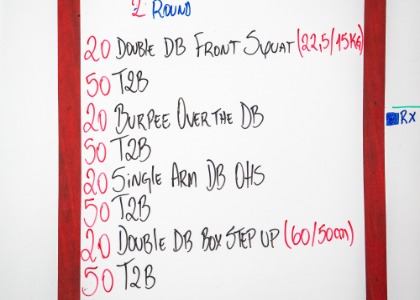 2 ROUND
20 DOUBLE DB FRONT SQUAT (22,5/15KG)
50 T2B
20 BURPEE OVER THE DB
50 T2B
20 SINGLE ARM DB OHS
50 T2B
20 DOUBLE DB BOX STEP UP (60/50cm)
50 T2B
RX